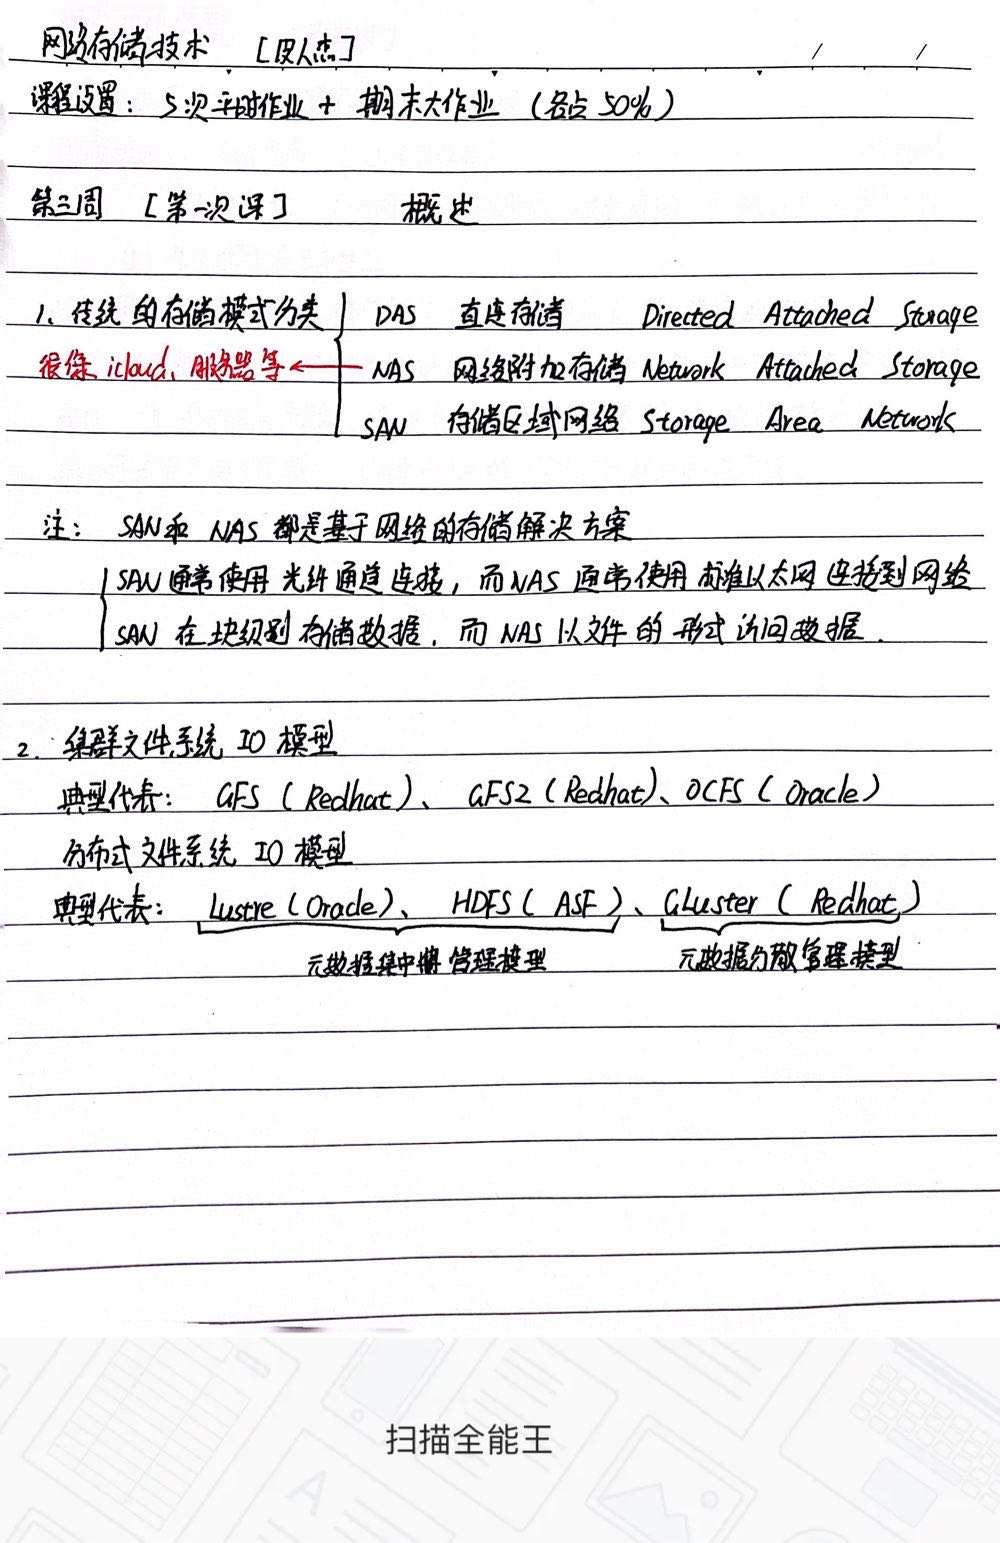 网络存储技术 [皮人杰]
课程设置: 5次平时作业 + 期末大作业 (各占 50%)
第三周 [第一次课] 概述
1、传统的存储模式分类 DAS 直连存储 Directed Attached Storage
很像 icloud、服务器等 ← NAS 网络附加存储 Network Attached Storage
SAN 存储区域网络 Storage Area Network
注: SAN和 NAS 都是基于网络的存储解决方案
SAN通常使用光纤通道连接，而NAS 通常使用标准以太网连接到网络
SAN 在块级别存储数据，而 NAS 以文件的形式访问数据.
2. 集群文件系统 IO 模型
典型代表: GFS (Redhat)、 GFS2 (Redhat)、OCFS (Oracle)
分布式文件系统 IO 模型
典型代表: Lustre (Oracle)、 HDFS (ASF)、GLuster (Redhat)
元数据集中 管理模型 元数据分散管理模型
扫描全能王